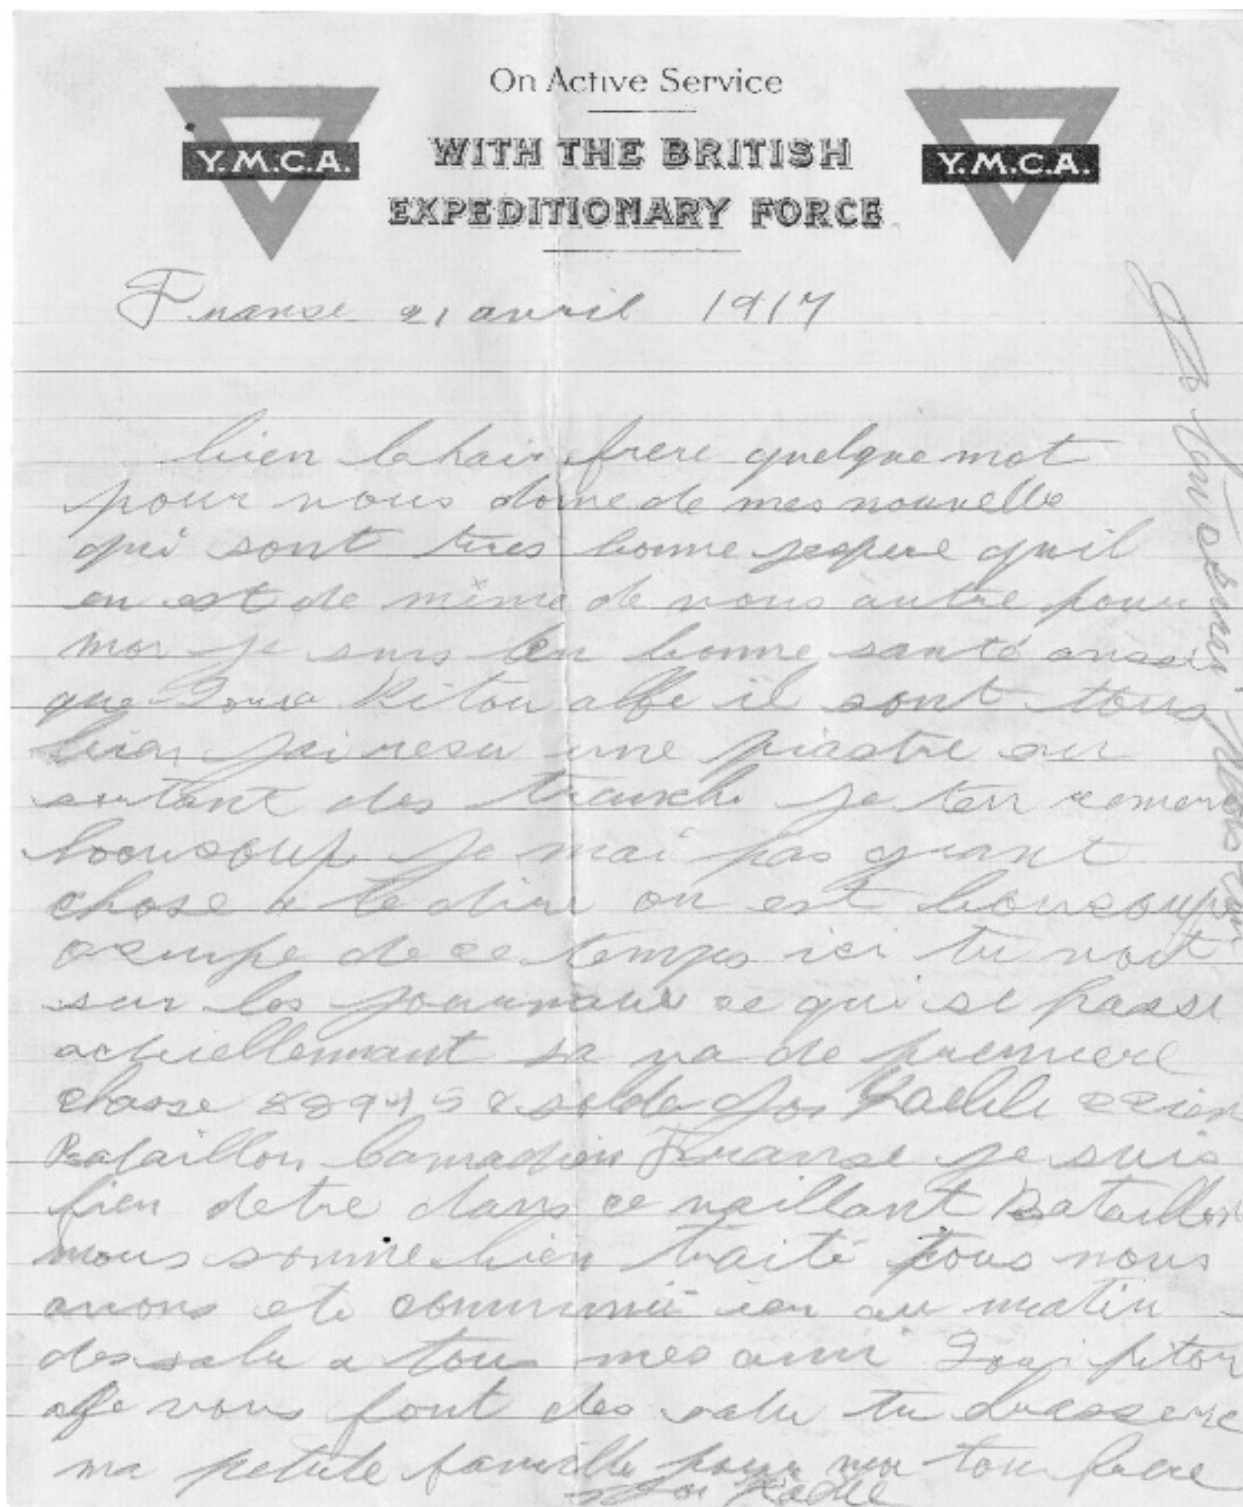 On Active Service
Y.M.C.A.
WITH THE BRITISH
EXPEDITIONARY FORCE
Y.M.C.A.
Franse 21 avril 1917
bien chair frere quelque mot
pour vous donne de mes nouvelle
qui sont tres bonne jespere quil
en est de même de vous autre pour
moi je suis en bonne santé aussi
que Pitou alfe il sont tous
bien jai resu une piastre en
sortant des tranche je ten remerc
boucoup je nai pas grant
chose a te dire on est boucoup
ocupe de ce temps ici tu voit
sur les journaux ce qui se passe
actuellemant sa va de premiere
classe solda Jos 22ien
Bataillon Canadien Franse je suis
fier detre dans ce vaillant Bataillon
nous somme bien traité tous nous
avons ete communié ier au matin
des salu a tous mes ami pitou
alfe vous font des salu tu
ma petite famille pour moi ton frere
Jos